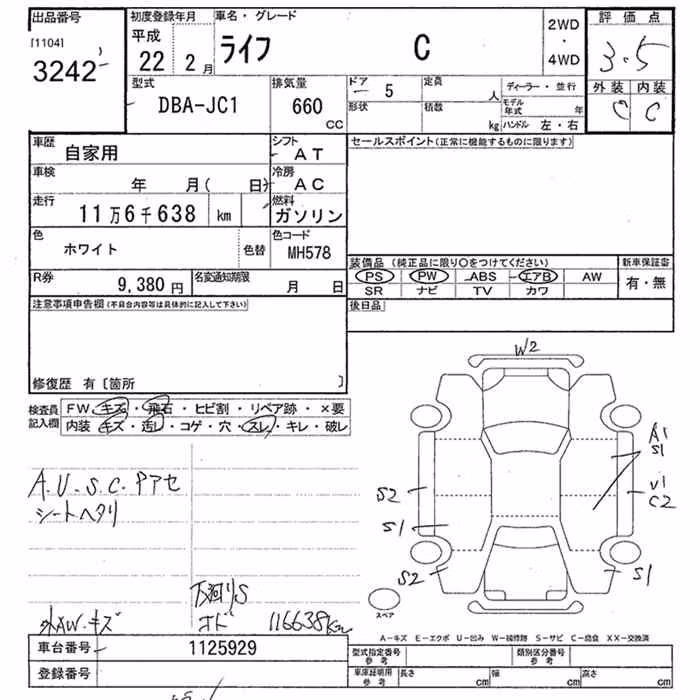 出品番号
[1104]
3242
初度登録年月
平成
22 2月
車名・グレード
ライフ C
2WD
・
4WD
評価点
3.5
外装 内装
C C
型式
DBA-JC1
排気量
660
CC
ドア
5
形状
定員
人
積数
kg
ディーラー・並行
モデル年式 年
ハンドル 左・右
車歴
自家用
シフト
AT
車検
年 月( 日)
冷房
AC
走行
11万6千638 km
燃料
ガソリン
色
ホワイト
色替
色コード
MH578
R券
9,380円
名変通知期限
月 日
セールスポイント(正常に機能するものに限ります)
装備品(純正品に限り○をつけてください)
PS PW ABS エアB AW
SR ナビ TV カワ
新車保証書
有・無
後日品
注意事項申告欄(不具合内容等は具体的に記入して下さい)
修復歴 有[箇所 ]
検査員記入欄
FW キズ・飛石・ヒビ割・リペア跡・×要
内装 キズ・汚レ・コゲ・穴・スレ・キレ・破レ
A.U.S.C.Pアセ
シートヘタリ
下廻りS
外AW・キズ
オド 116638km
W2
A1
S1
U1
C2
S2
S1
S2
S1
スペア
A-キズ E-エクボ U-凹み W-補修跡 S-サビ C-腐食 XX-交換済
車台番号
1125929
登録番号
型式指定番号
参考
類別区分番号
参考
車庫証明用
参考
長さ cm
幅 cm
高さ cm